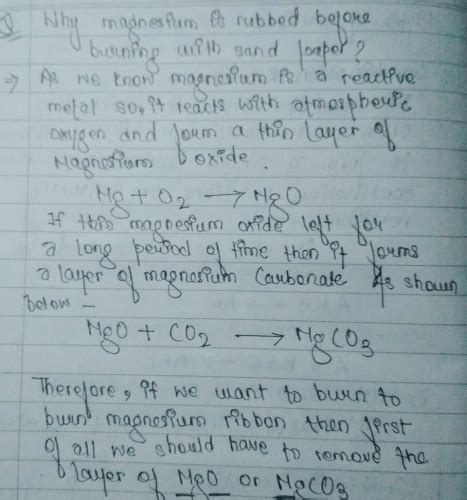 Q Why magnesium is rubbed before
burning with sand paper?
→ As we know magnesium is a reactive
metal so, it reacts with atmospheric
oxygen and form a thin layer of
Magnesium oxide.
Mg + O2 → MgO
If this magnesium oxide left for
a long period of time then it forms
a layer of magnesium Carbonate As shown
below –
MgO + CO2 → MgCO3
Therefore, if we want to burn to
burn magnesium ribbon then first
of all we should have to remove the
layer of MgO or MgCO3